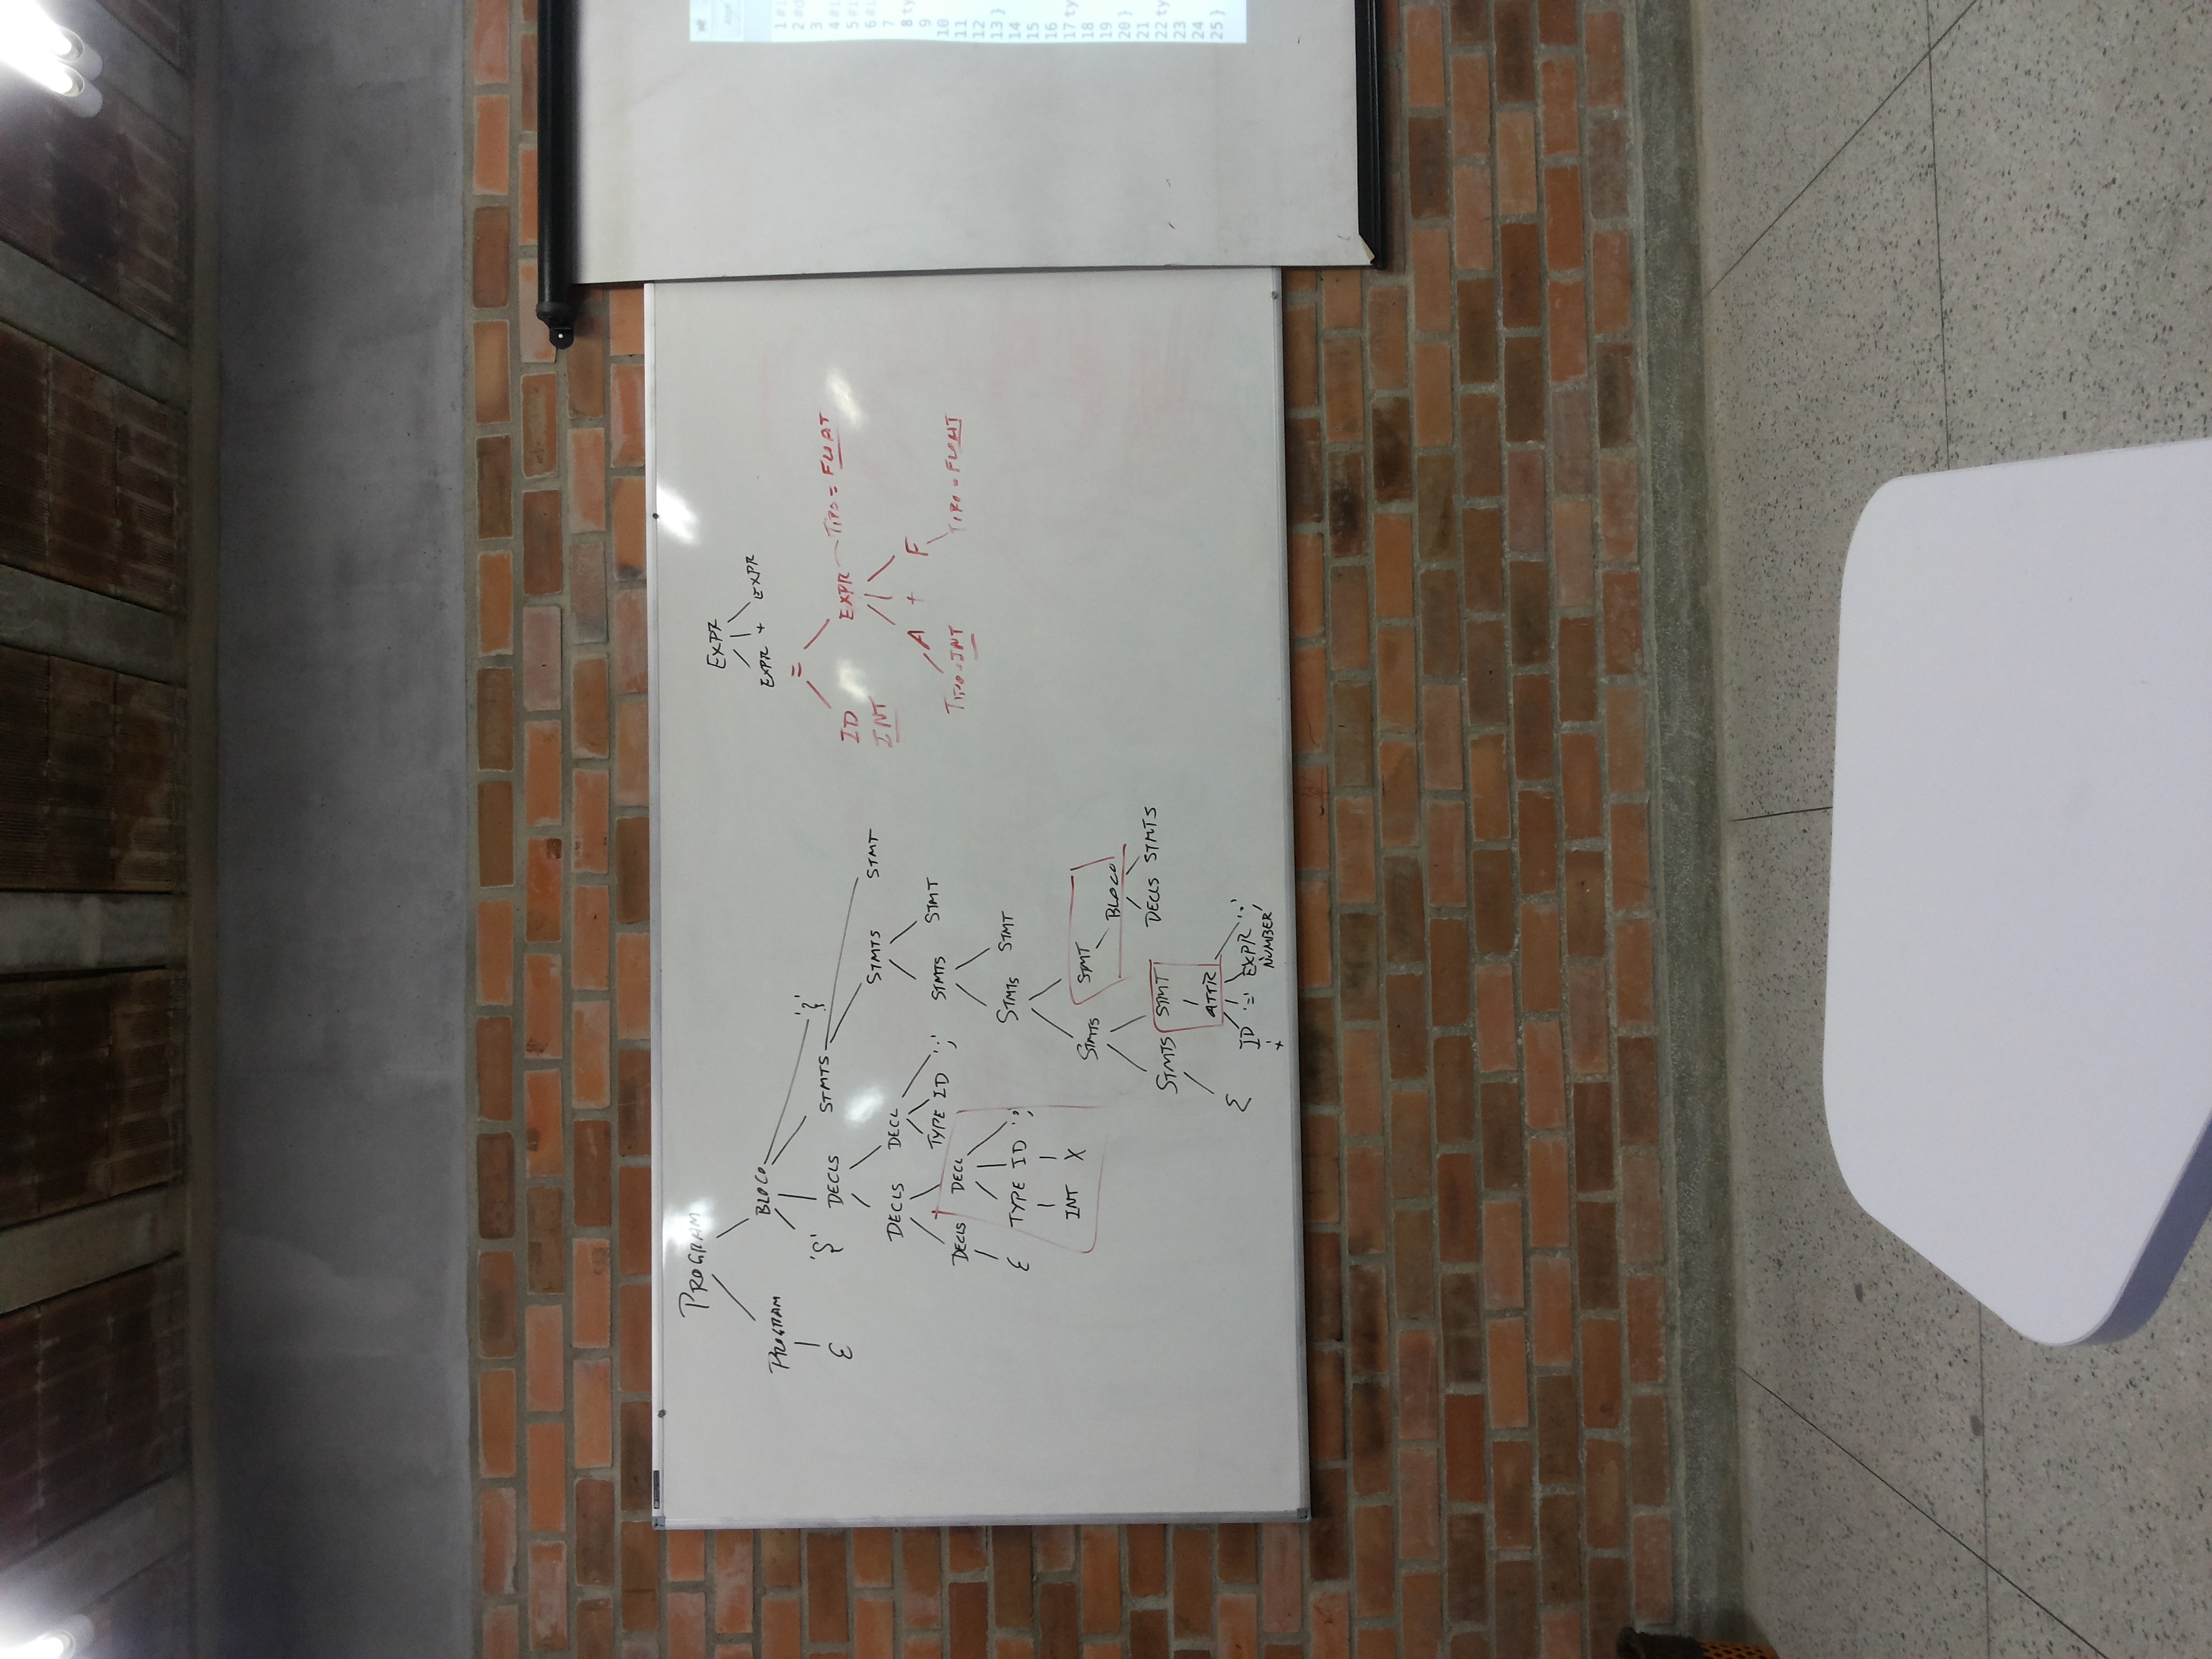 PROGRAM
PROGRAM BLOCO
ε '{' DECLS STMTS '}'
DECLS DECL STMTS STMT
DECLS DECL TYPE ID ';' STMTS STMT
ε TYPE ID ';' STMTS STMT
INT X STMTS STMT
BLOCO
STMTS STMT DECLS STMTS
ε ATTR
ID '=' EXPR ';'
X NUMBER
EXPR
EXPR + EXPR
=
ID EXPR TIPO = FLOAT
INT
A + F
TIPO = INT TIPO = FLOAT
1 #i
2 #d
3
4 #i
5 #i
6 #i
7
8 ty
9
10
11
12
13 }
14
15
16
17 ty
18
19
20 }
21
22 ty
23
24
25 }